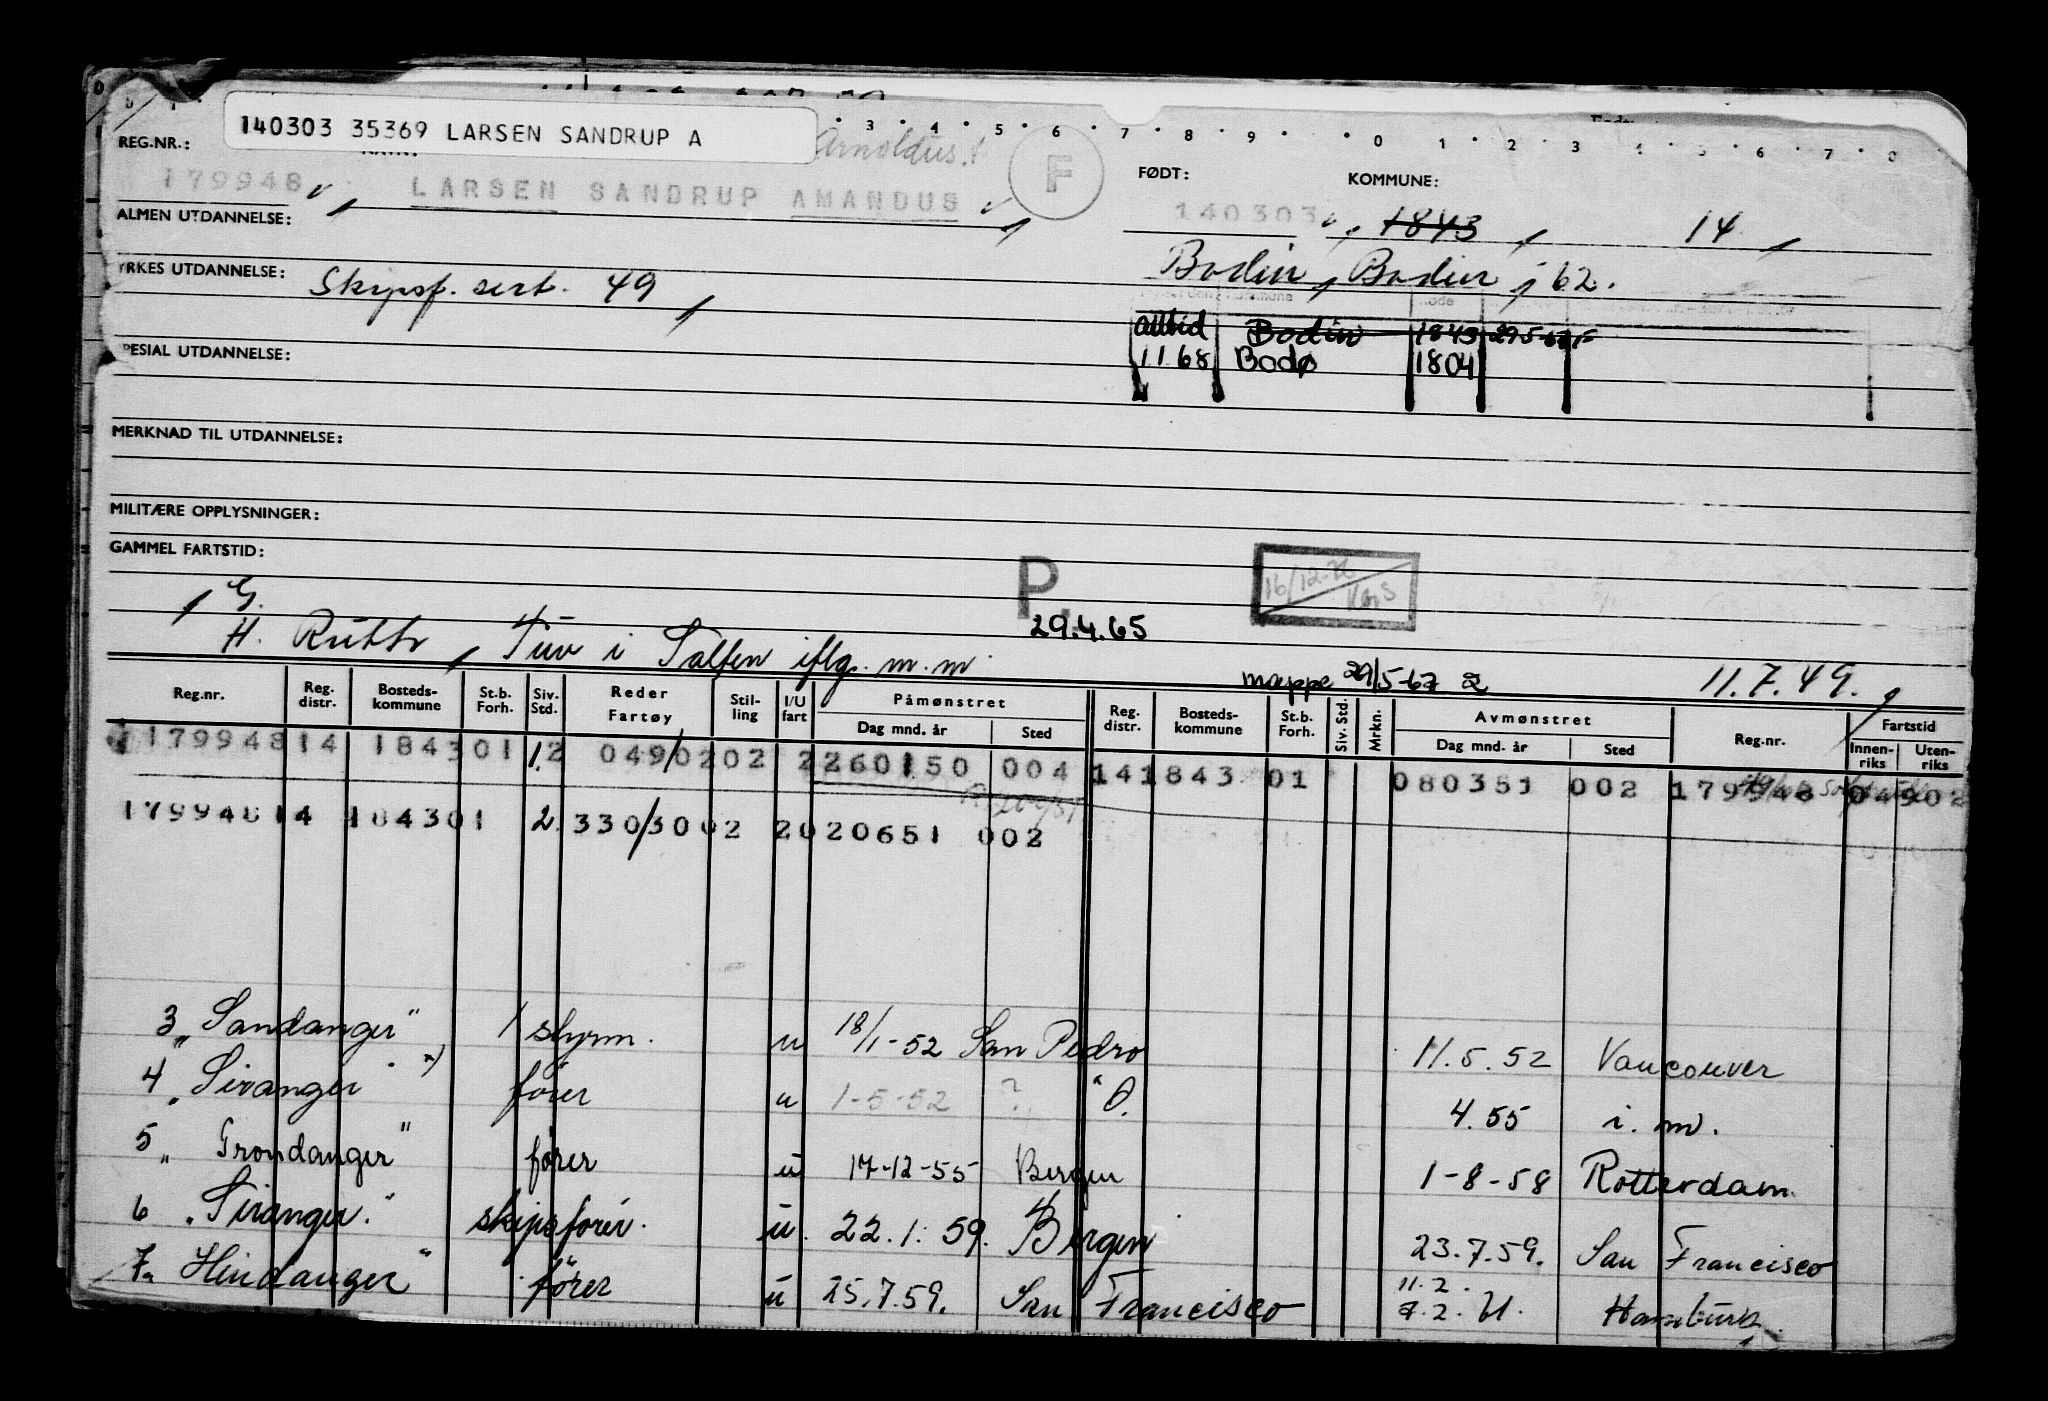 140303 35369 LARSEN SANDRUP A
3 4 5 6 7 8 9 0 1 2 3 4 5 6 7 8
REG.NR.: Arnoldus. F FØDT: KOMMUNE:
179948 LARSEN SANDRUP AMANDUS 140303 1843 14
ALMEN UTDANNELSE:
Bodin, Bodin, 62.
YRKES UTDANNELSE: Skipsf. sert. 49,
alltid Bodin 1843 295-67
SPESIAL UTDANNELSE:
11 68 Bodø 1804
MERKNAD TIL UTDANNELSE:
MILITÆRE OPPLYSNINGER:
GAMMEL FARTSTID:
P.
16/12-70
G.
29.4.65
H. Ruth, Tuv i Salten iflg. m.m.
mappe 29/5-67 11.7.49.
Reg.nr. Reg. distr. Bosteds- kommune St.b. Forh. Siv. Std. Reder Fartøy Stil- ling I/U fart Påmønstret Dag mnd. år Sted Reg. distr. Bosteds- kommune St.b. Forh. Siv. Std. Mrkn. Avmønstret Dag mnd. år Sted Reg.nr. Fartstid Innen- riks Uten- riks
179948 14 1843 01 1.2 049/02 02 2 260150 004 14 1843 01 080351 002 179948 04902
179948 14 1843 01 2. 330/30 02 2 020651 002
3 "Sandanger" 1 styrm. u 18/1-52 San Pedro 11.5.52 Vancouver
4 "Siranger" x) fører u 1-5-52 ? " O. 4.55 i. m.
5 "Trondanger" fører u 17-12-55 Bergen 1-8-58 Rotterdam.
6 "Siranger." skipsfører. u. 22.1.59. Bergen 23.7.59. San Francisco
11.2.
7 "Hindanger" fører u 25.7.59. San Francisco 7.2.61. Hamburg.